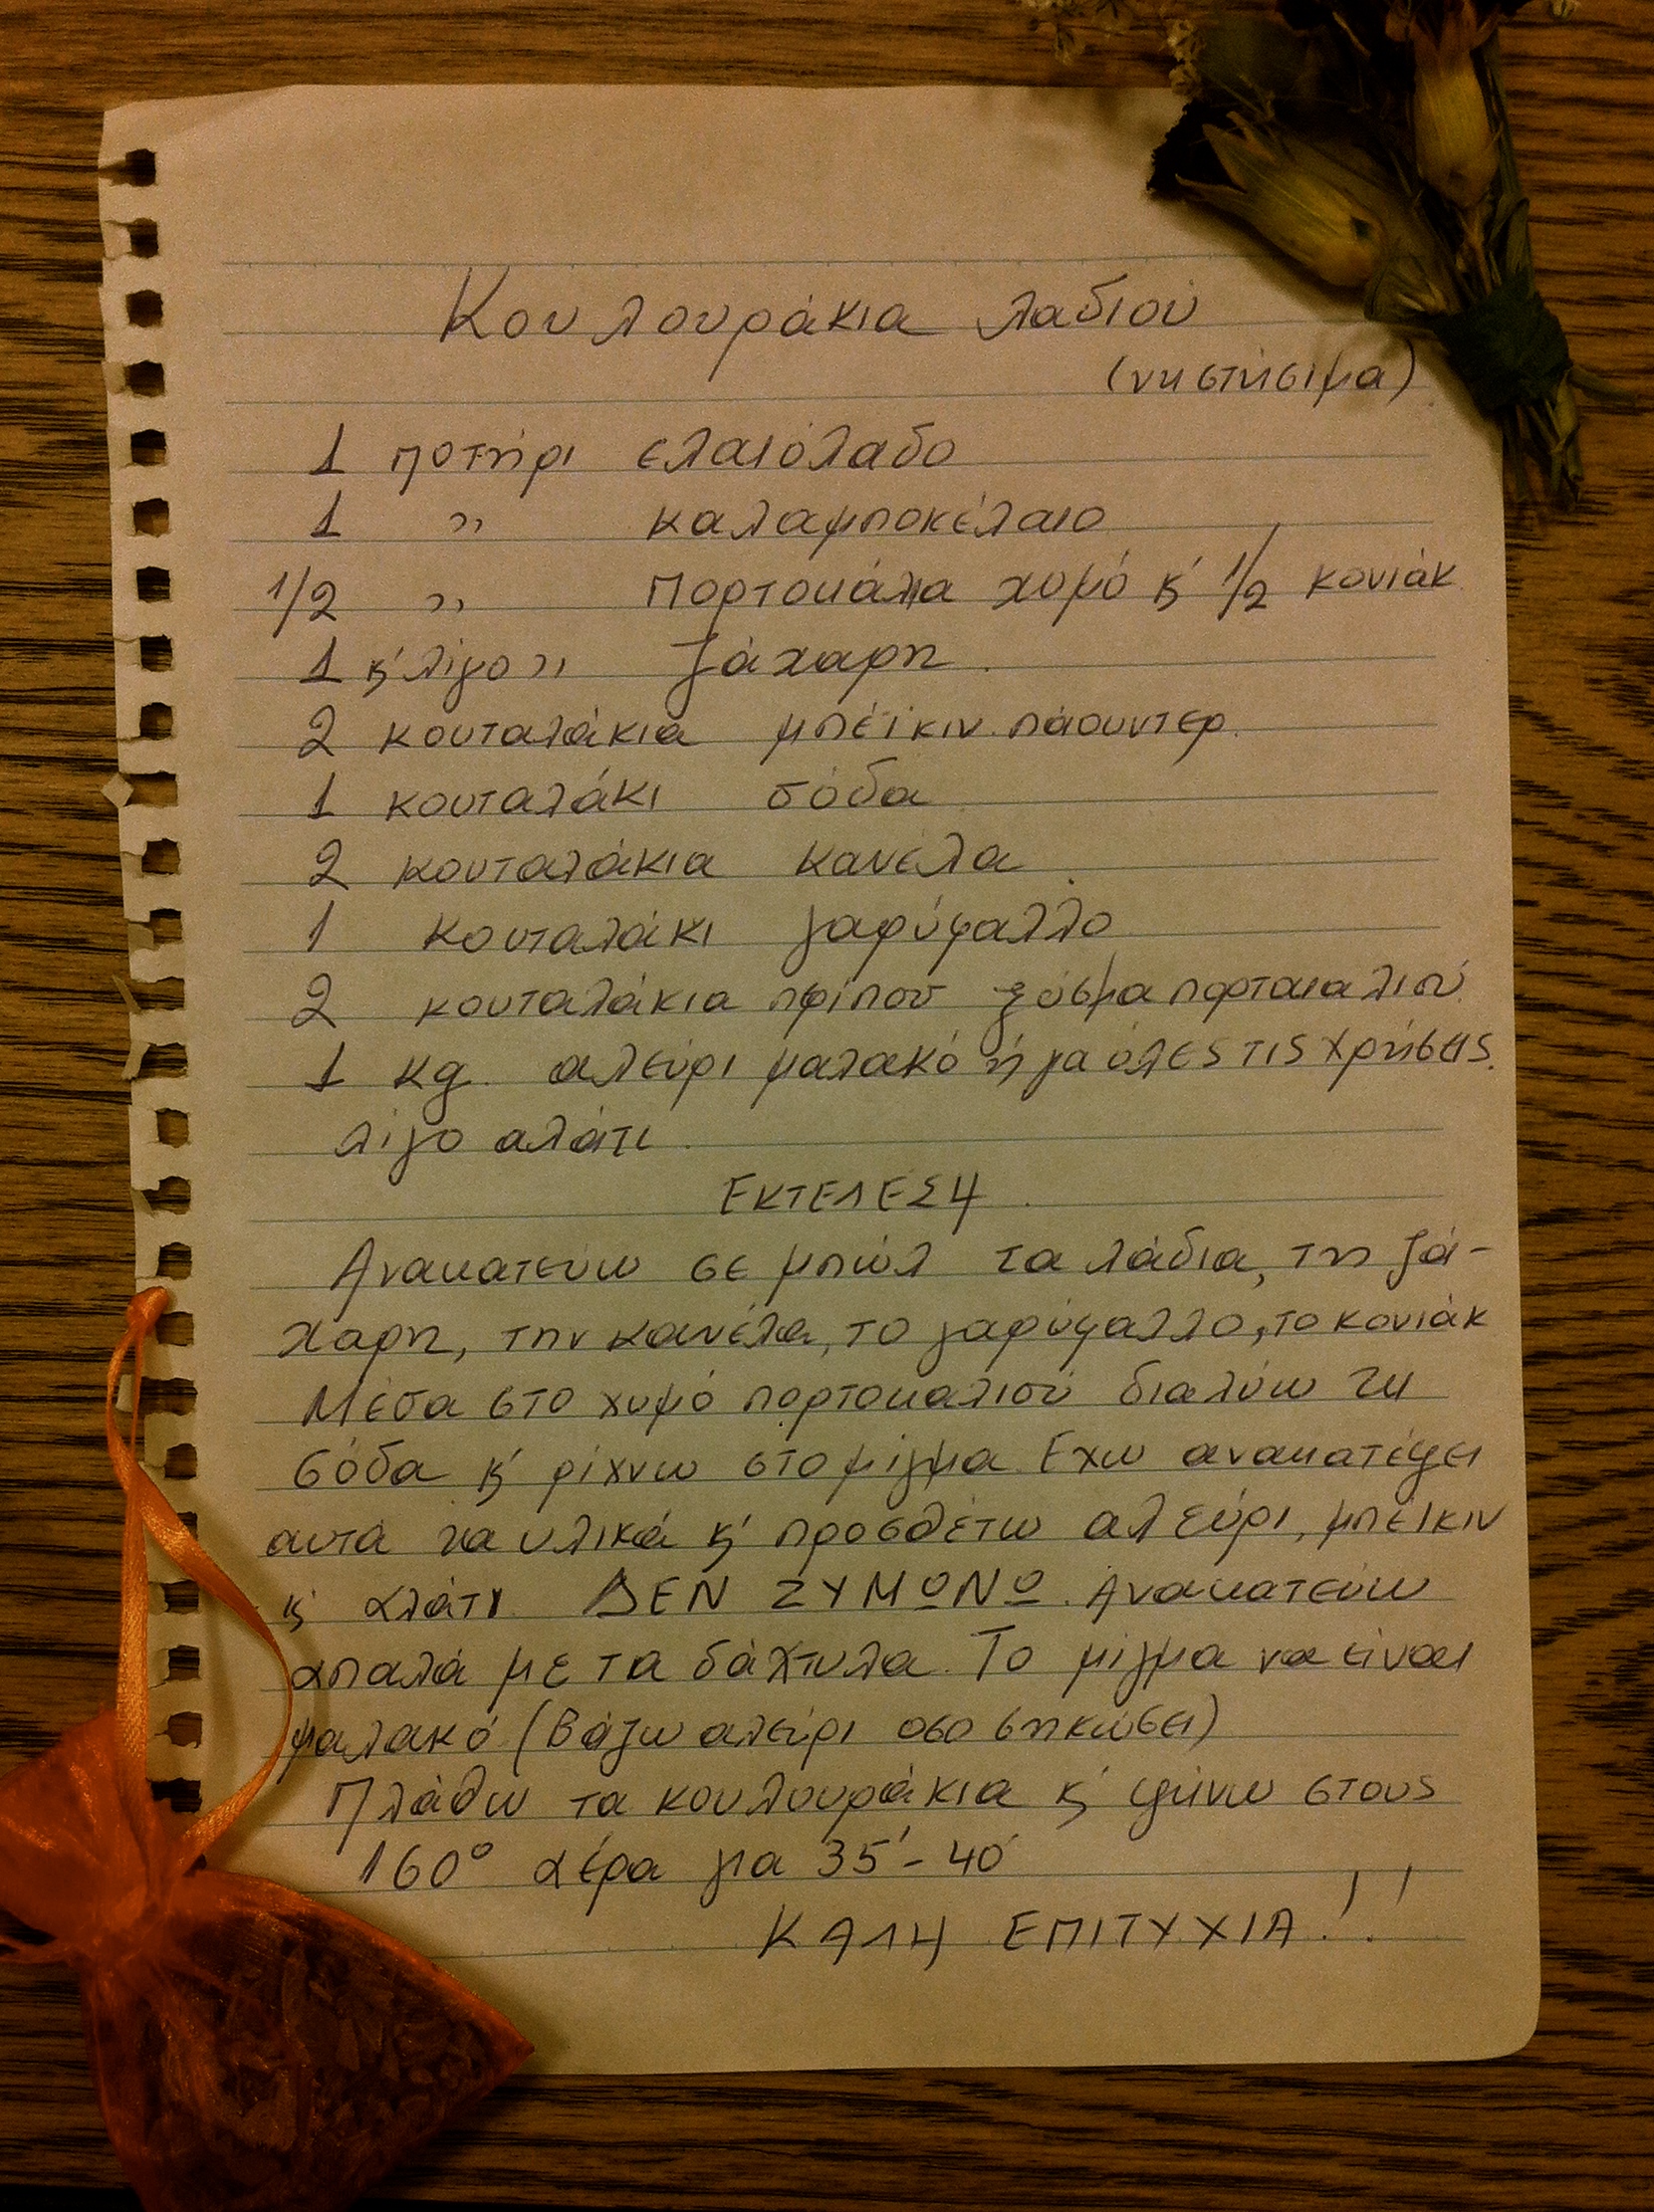 Κουλουράκια λαδιού
(νηστήσιμα)
1 ποτήρι ελαιόλαδο
1 " καλαμποκέλαιο
1/2 " πορτοκάλια χυμό κ' 1/2 κονιάκ
1 κ' λίγο " ζάχαρη.
2 κουταλάκια μπέϊκιν πάουντερ.
1 κουταλάκι σόδα
2 κουταλάκια κανέλα.
1 κουταλάκι γαρύφαλλο
2 κουταλάκια περίπου ξύσμα πορτοκαλιού
1 kg. αλεύρι μαλακό ή για όλες τις χρήσεις.
λίγο αλάτι.
ΕΚΤΕΛΕΣΗ.
Ανακατεύω σε μπώλ τα λάδια, τη ζά-
χαρη, την κανέλα, το γαρύφαλλο, το κονιάκ
Μέσα στο χυμό πορτοκαλιού διαλύω τη
σόδα κ' ρίχνω στο μίγμα. Εχω ανακατέψει
αυτά τα υλικά κ' προσθέτω αλεύρι, μπέικιν
κ' αλάτι. ΔΕΝ ΖΥΜΩΝΩ. Ανακατεύω
απαλά με τα δάχτυλα. Το μίγμα να είναι
μαλακό (βάζω αλεύρι οσο σηκώσει)
Πλάθω τα κουλουράκια κ' ψήνω στους
160° αέρα για 35'-40'
ΚΑΛΗ ΕΠΙΤΥΧΙΑ!!